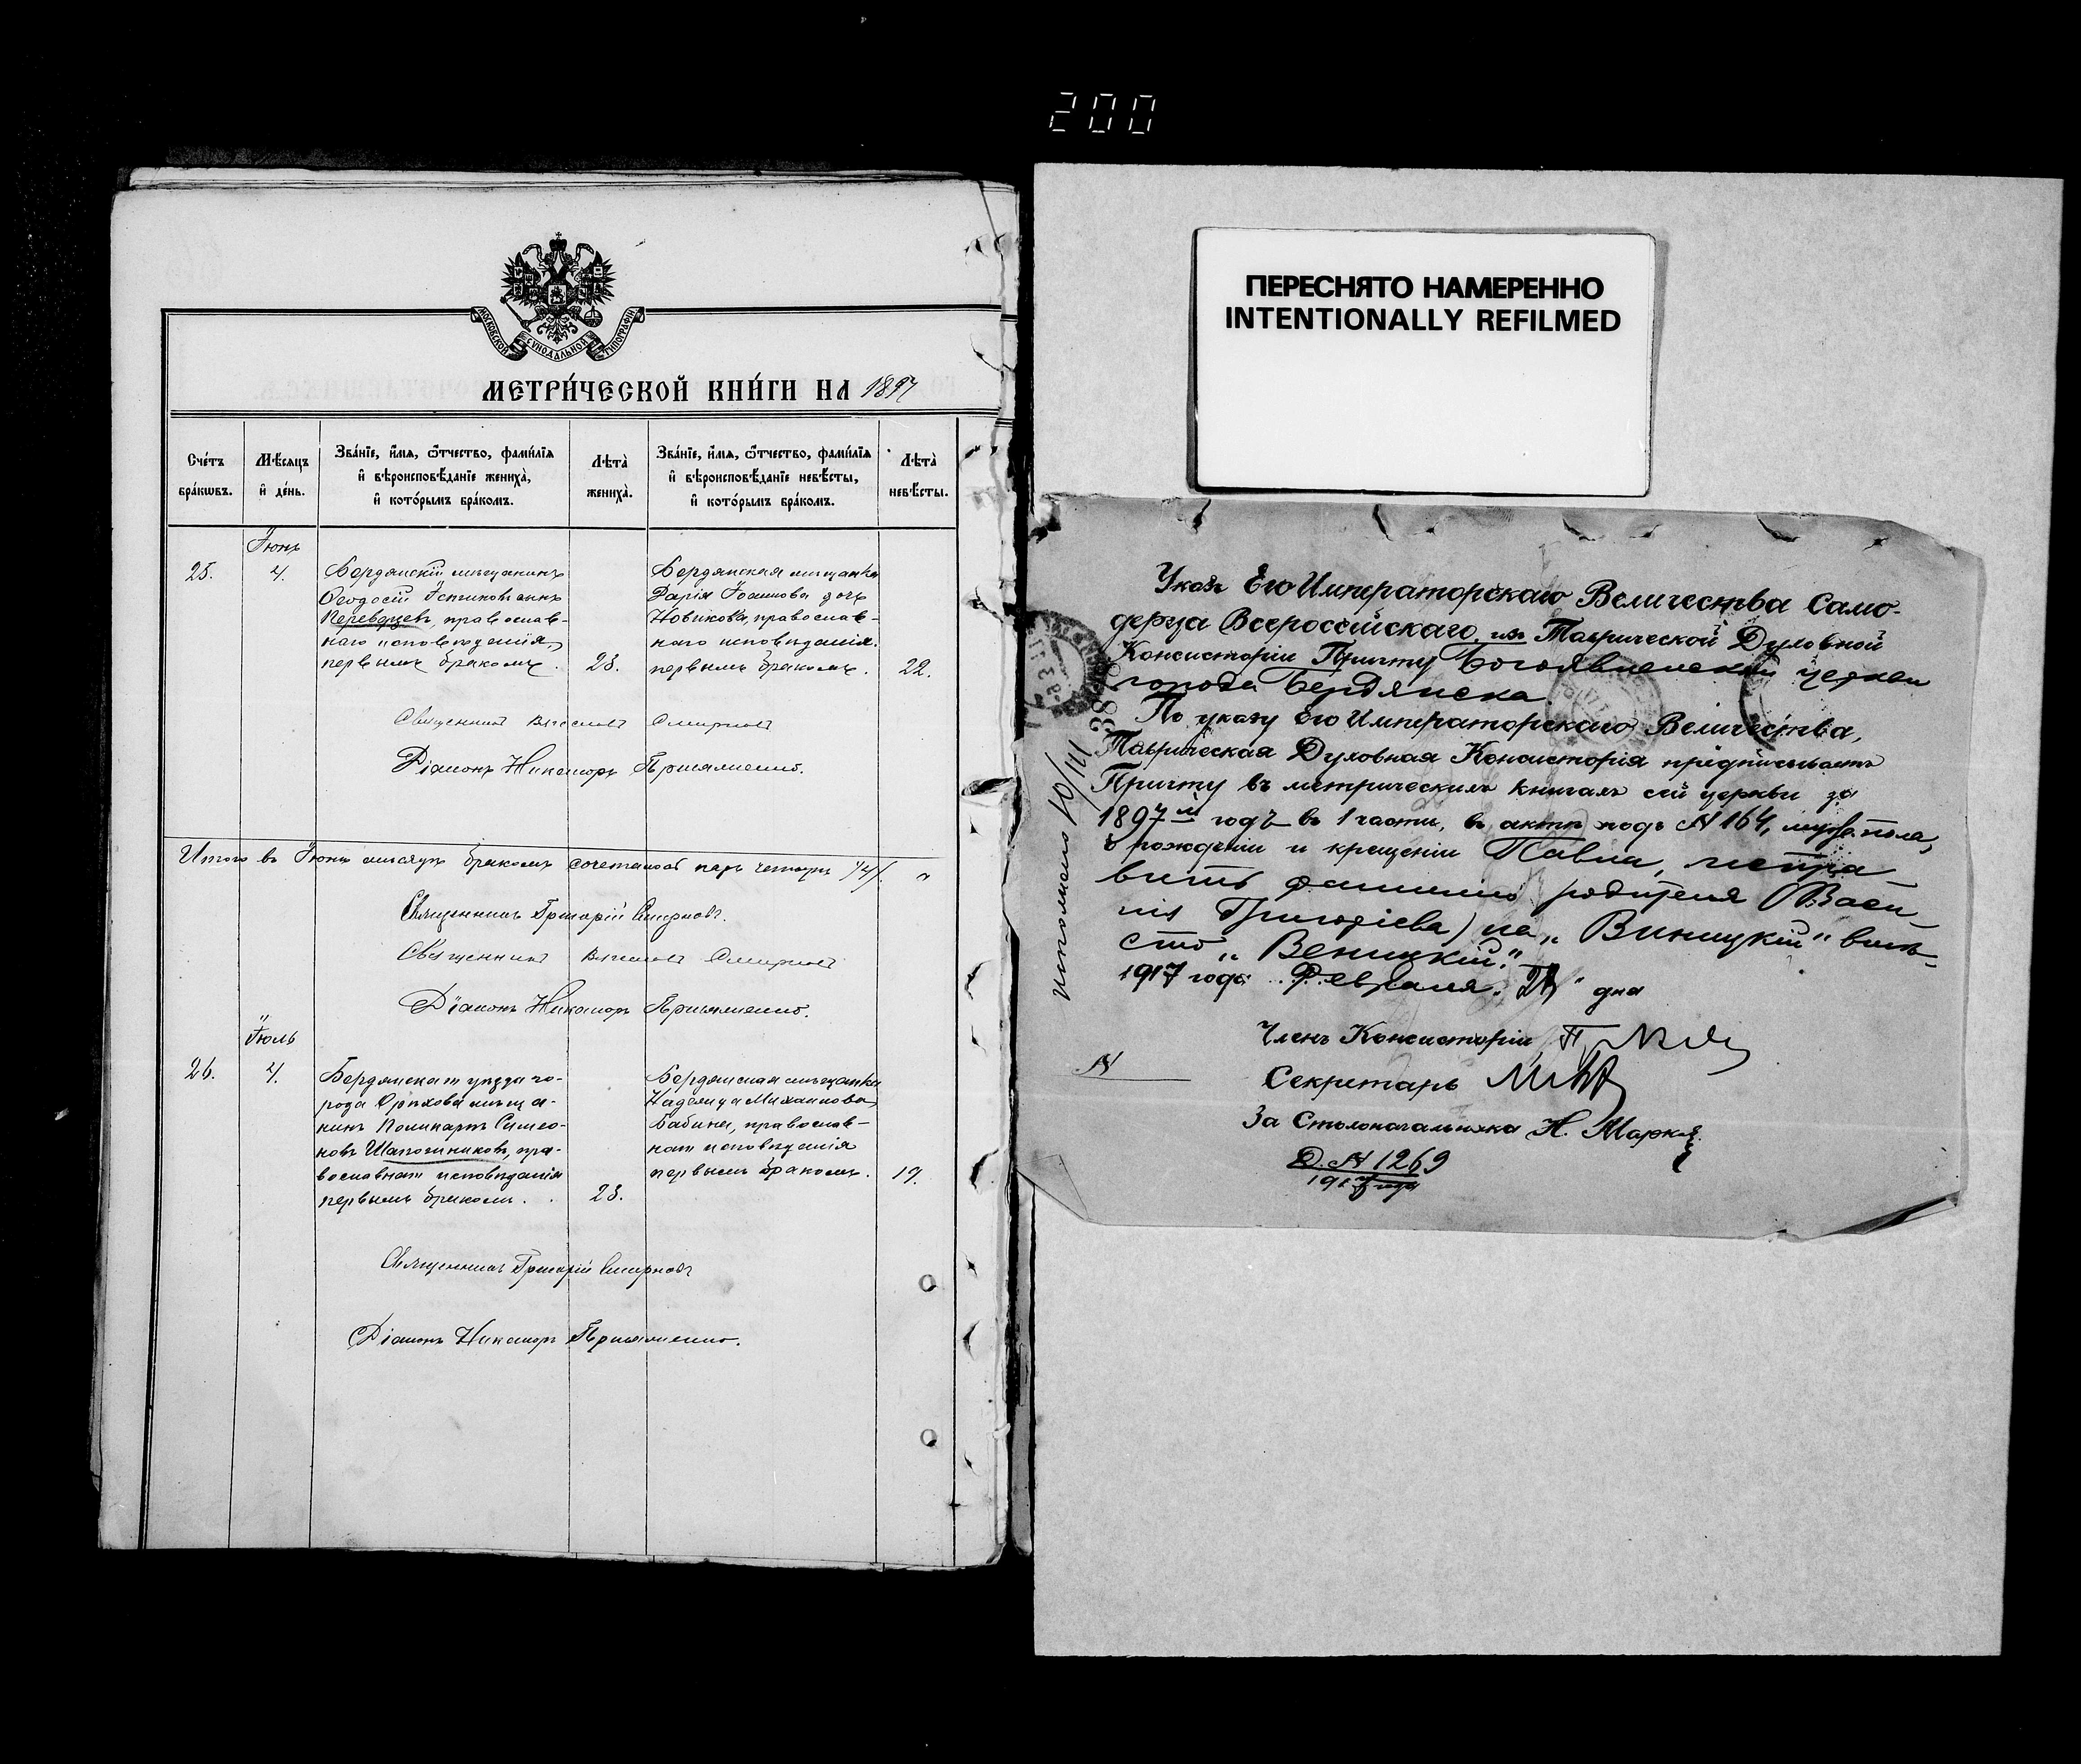 200
МОСКОВСКОЙ СѴНОДАЛЬНОЙ ТИПОГРАФІИ
МЕТРИ́ЧЕСКОЙ КНИ́ГИ НА 1897
Сче́тъ бра́кѡвъ.
Мѣ́сяцъ и҆ де́нь.
Зва́нїе, и҆́мѧ, ѻ҆́тчество, фамı́лїѧ и҆ вѣроисповѣ́данїе жениха̀, и҆ кото́рымъ бра́комъ.
Лѣта̀ жениха̀.
Зва́нїе, и҆́мѧ, ѻ҆́тчество, фамı́лїѧ и҆ вѣроисповѣ́данїе невѣ́сты, и҆ кото́рымъ бра́комъ.
Лѣта̀ невѣ́сты.
Іюнь
25.
4.
Бердянскій мѣщанинъ
Ѳеодосій
Переверзевъ, православ-
наго исповѣданія,
первымъ бракомъ.
23.
Бердянская мѣщанка
Дарія Іоакимова дочь
Новикова, православ-
наго исповѣданія.
первымъ бракомъ.
22.
Священникъ Вячеславъ Смирновъ
Діаконъ Никаноръ
Итого въ Іюнѣ мѣсяцѣ бракомъ сочеталось паръ четыре /4/. "
Священникъ Григорій Смирновъ.
Священникъ Вячеславъ Смирновъ
Діаконъ Никаноръ
Іюль
26.
4.
Бердянскаго уѣзда го-
рода Орѣхова мѣща-
нинъ Поликарпъ Симео-
новъ Шапошниковъ, пра-
вославнаго исповѣданія
первымъ бракомъ.
23.
Бердянская мѣщанка
Надежда Михаилова
Бабина, православ-
наго исповѣданія
первымъ бракомъ.
19.
Священникъ Григорій Смирновъ
Діаконъ Никаноръ
ПЕРЕСНЯТО НАМЕРЕННО
INTENTIONALLY REFILMED
Указъ Его Императорскаго Величества Само-
держца Всероссійскаго, изъ Таврической Духовной
Консисторіи Причту Богоявленской церкви
города Бердянска.
По указу Его Императорскаго Величества,
Таврическая Духовная Консисторія предписываетъ
Причту въ метрическихъ книгахъ сей церкви за
1897й годъ въ 1 части, въ актѣ подъ № 164, муж. пола,
о рожденіи и крещеніи Павла, испра
вить фамилію родителя (Васи-
лія Григоріева) на „Виницкій" вмѣ-
сто „Веницкій".
1917 года Февраля дня
Членъ Консисторіи
Секретарь
За Столоначальника Н.
Д. № 1269
1917 года
№
Исполнено 10/III